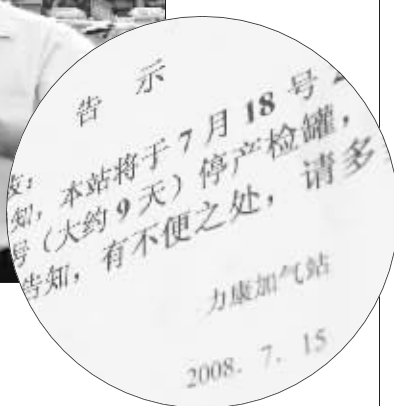 告 示
友：
知，本站将于 7 月 18 号
号（大约 9 天）停产检罐，
告知，有不便之处，请多
力康加气站
2008. 7. 15